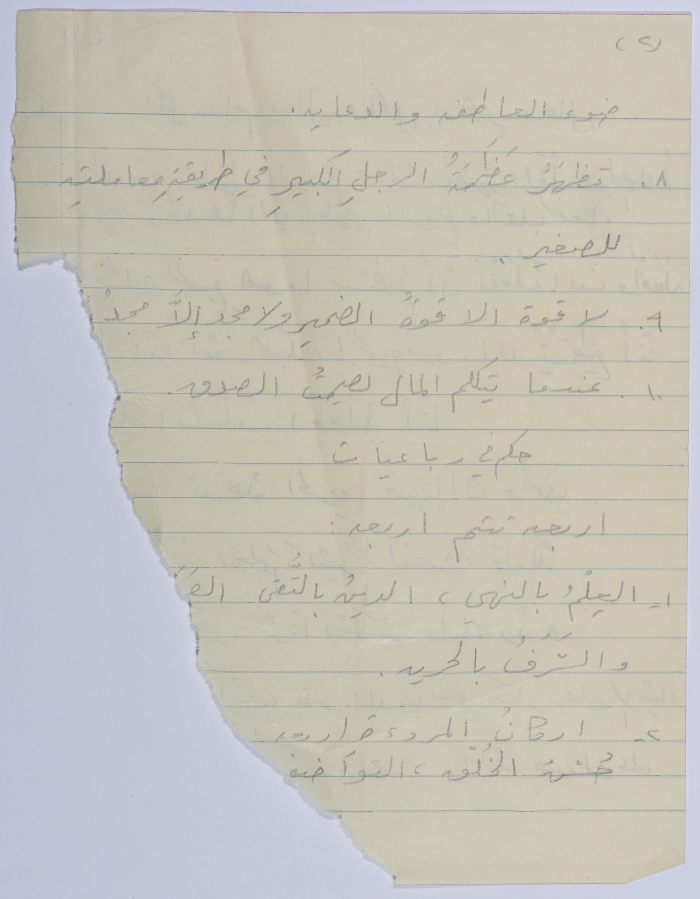 (٢)
ضوء العاطفه والدعايه.
٨. تظهَرُ عَظَمَةُ الرجلِ الكبيرِ في طريقةِ معاملتِهِ
للصغير.
٩. لا قوة الا قوةُ الضمير ولا مجد إلاَّ مجدُ
١٠. عندما يتكلم المال يصمتُ الصدق.
حكم في رباعيات
اربعه تتم اربعه:
١- العِلْمُ بالنهى، الدينُ بالتَّقى
والشَرَفُ بالحريه.
٢- اركانُ المروءة اربعه
حُسْنُ الخُلق، التواضع